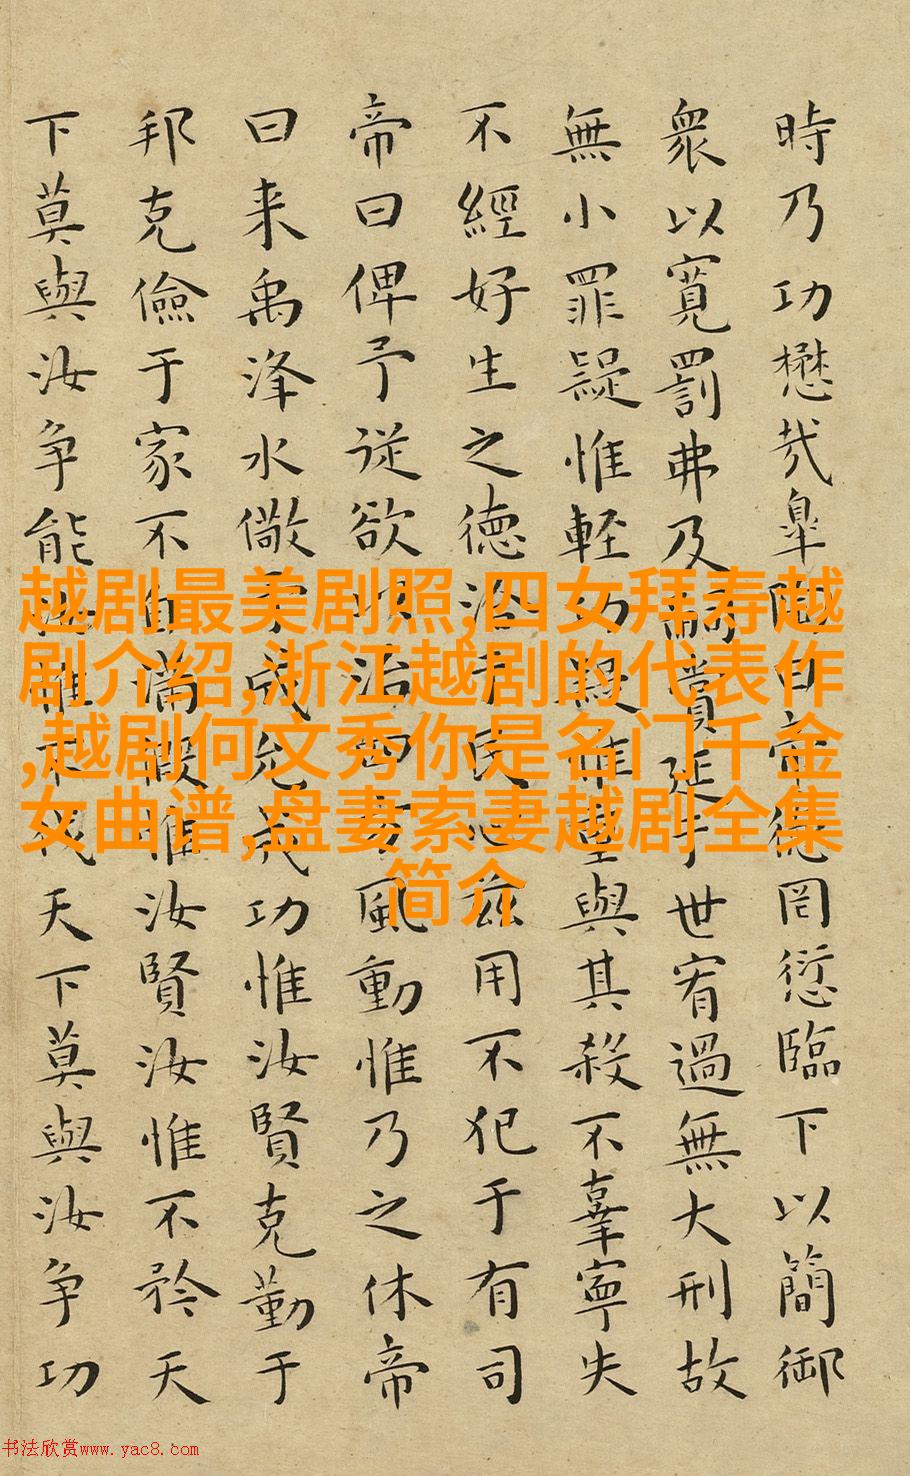 時乃功懋哉皐陶曰帝德罔愆臨下以簡御
衆以寬罰弗及嗣賞延于世宥過無大刑故
無小罪疑惟輕功疑惟重與其殺不辜寧失
不經好生之德洽于民心茲用不犯于有司
帝曰俾予從欲以治四方風動惟乃之休帝
曰来禹洚水儆予成允成功惟汝賢克勤于
邦克儉于家不自滿假惟汝賢汝惟不矜天
下莫與汝争能汝惟不伐天下莫與汝争功
越剧最美剧照,四女拜寿越
剧介绍,浙江越剧的代表作
,越剧何文秀你是名门千金
女曲谱,盘妻索妻越剧全集
简介
书法欣赏www.yac8.com